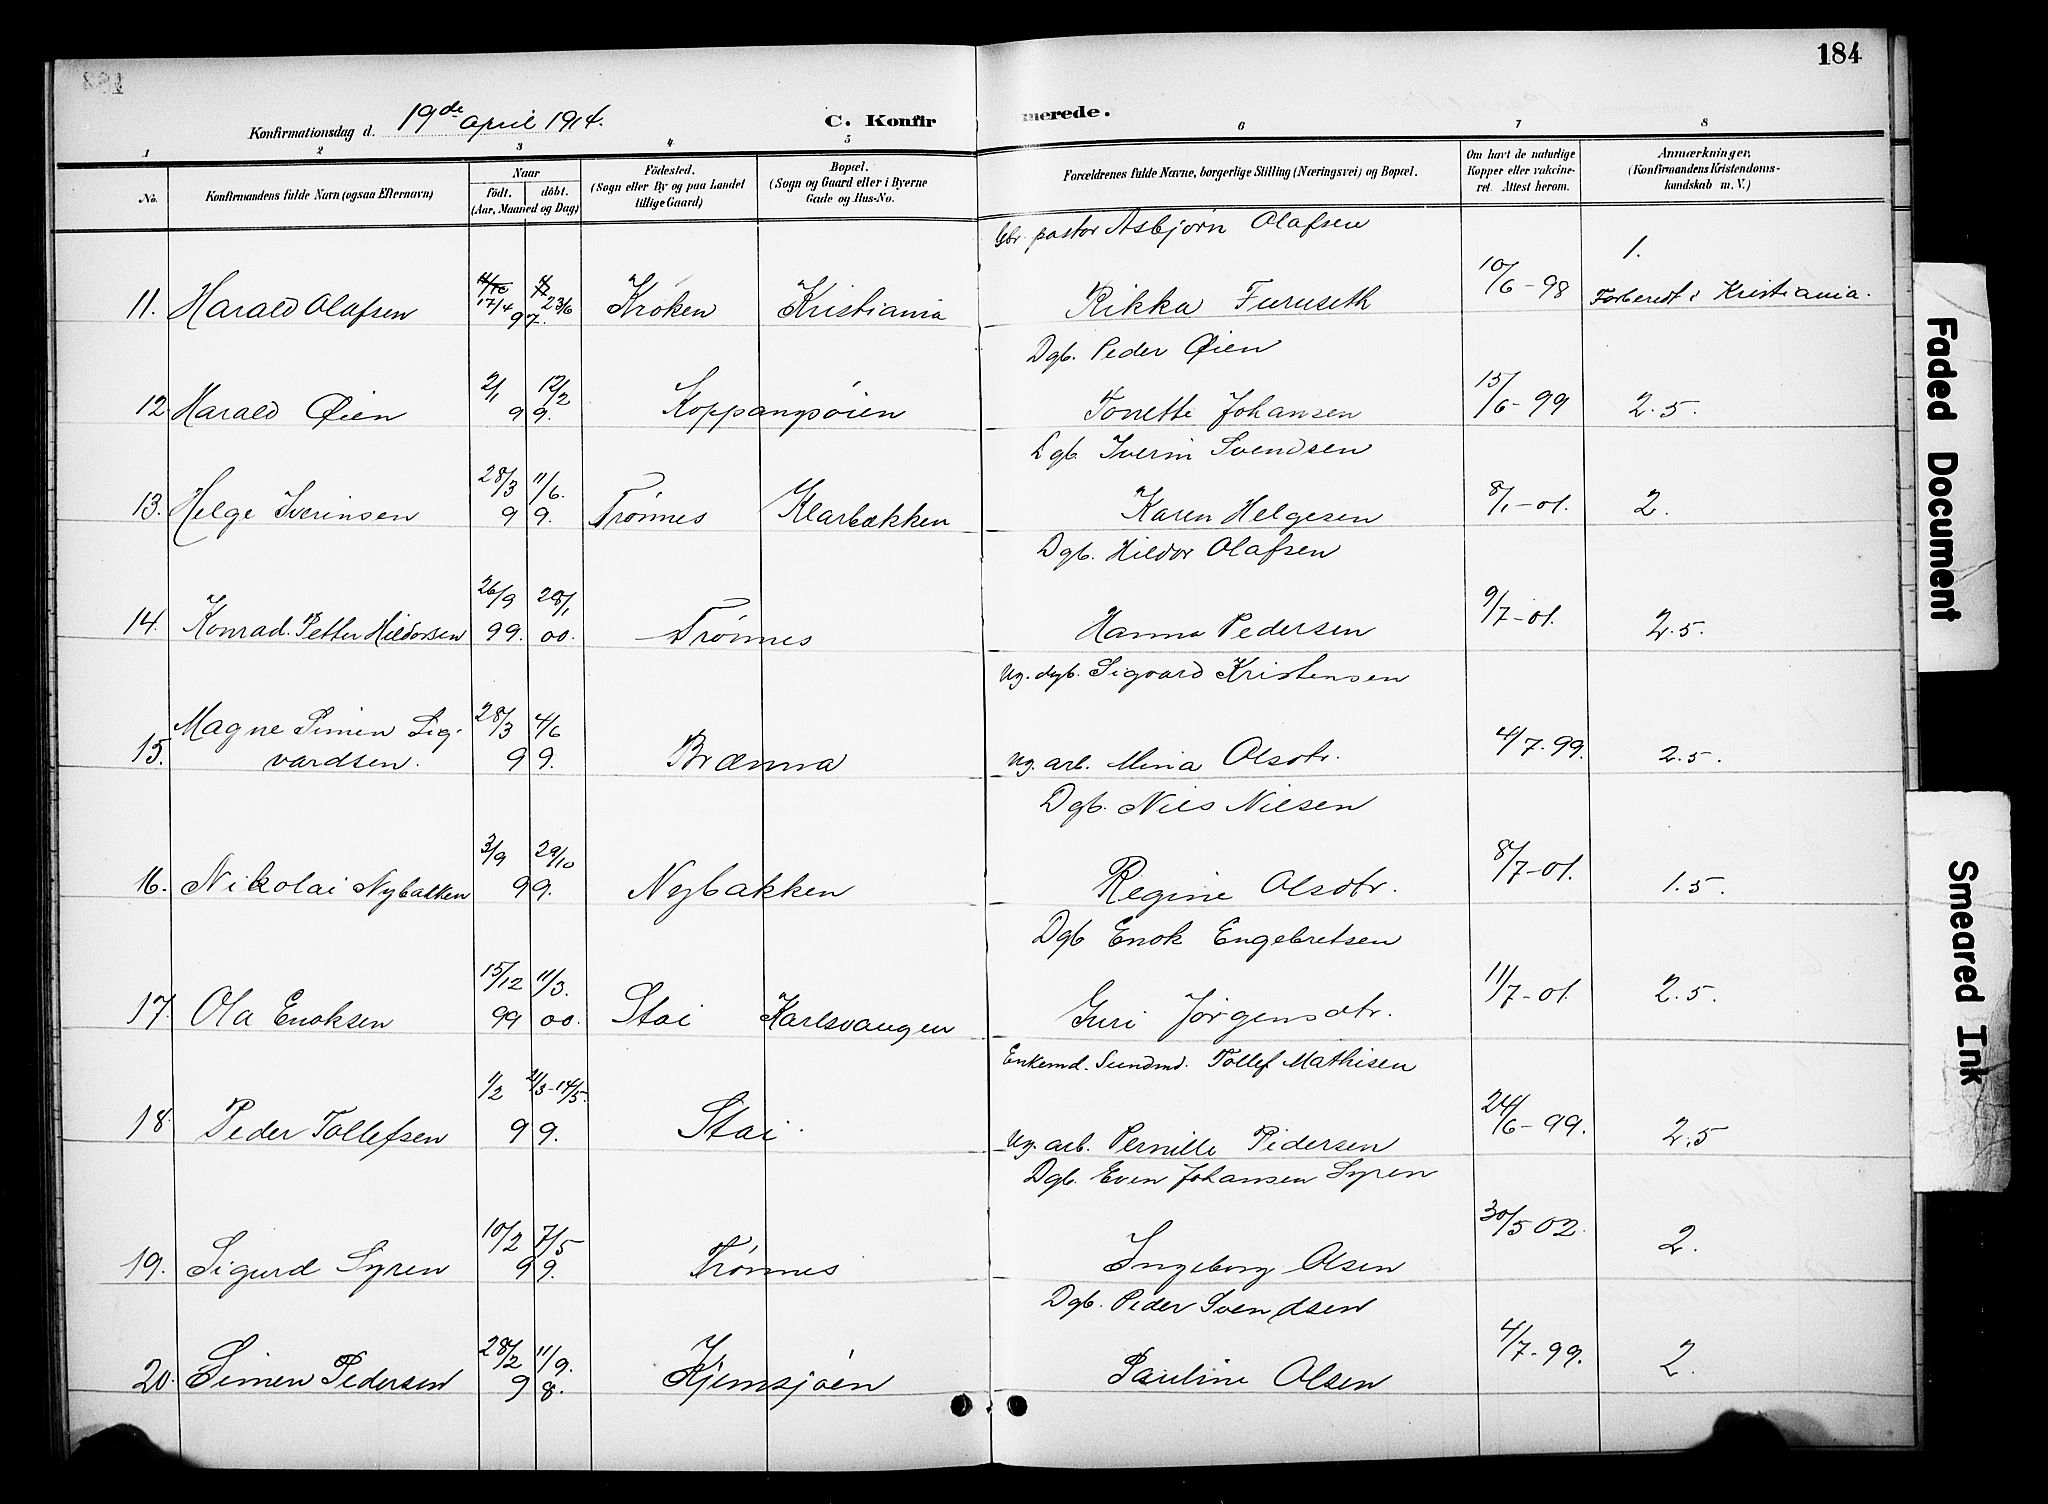 184
Konfirmationsdag d. 19de april 1914. C. Konfirmerede.
1 2 3 4 5 6 7 8
No. Konfirmandens fulde Navn (ogsaa Efternavn) Naar født. døbt. (Aar, Maaned og Dag) Födested. (Sogn eller By og paa Landet tillige Gaard) Bopæl. (Sogn og Gaard eller i Byerne Gade og Hus-No. Forældrenes fulde Navne, borgerlige Stilling (Næringsvei) og Bopæl. Om havt de naturlige Kopper eller vakcineret. Attest herom. Anmærkninger. (Konfirmandens Kristendomskundskab m. V.)
Gbr. pastor Asbjørn Olafsen
11. Harald Olafsen 17/4 23/6 97. Krøken Kristiania Rikka Furuseth 10/6-98 1. Forberedt i Kristiania.
Dgb. Peder Øien
12 Harald Øien 2/1 12/2 99. Koppangsøien Tonette Johansen 15/6-99 2.5.
Dgb. Iverin Svendsen
13. Helge Iverinsen 28/3 11/6. 99. Trønnes Klarbækken Karen Helgesen 8/1-01. 2.
Dgb. Hildor Olafsen
14. Konrad Petter Hildorsen 26/9 99. 28/1 00. Trønnes Hanna Pedersen 9/7-01. 2.5.
Ug. dgb. Sigvard Kristensen
15. Magne Simen Sigvardsen. 28/3 4/6 99. Brænna Ug. arb. Mina Olsdtr. 4/7-99. 2.5.
Dgb. Nils Nilsen
16. Nikolai Nybakken 3/9 29/10 99. Nybakken Regine Olsdtr. 8/7-01. 1.5.
Dgb Enok Engebretsen
17. Ola Enoksen 15/12 99 11/3. 00. Stai Karlsvangen Guri Jørgensdtr. 11/7-01. 2.5.
Enkemd. Sundmd. Tollef Mathisen
18. Peder Tollefsen 1/2 21/3-14/5. 99. Stai. Ug. arb. Pernille Pedersen 24/6-99. 2.5
Dgb. Even Johansen Syren
19. Sigurd Syren 10/2 7/5 99. Trønnes Ingeborg Olsen 30/5 02. 2.
Dgb. Peder Svendsen
20. Simen Pedersen 28/2 11/9. 98. Kjemsjøen Pauline Olsen 4/7-99. 2.
Faded Document
Smeared Ink